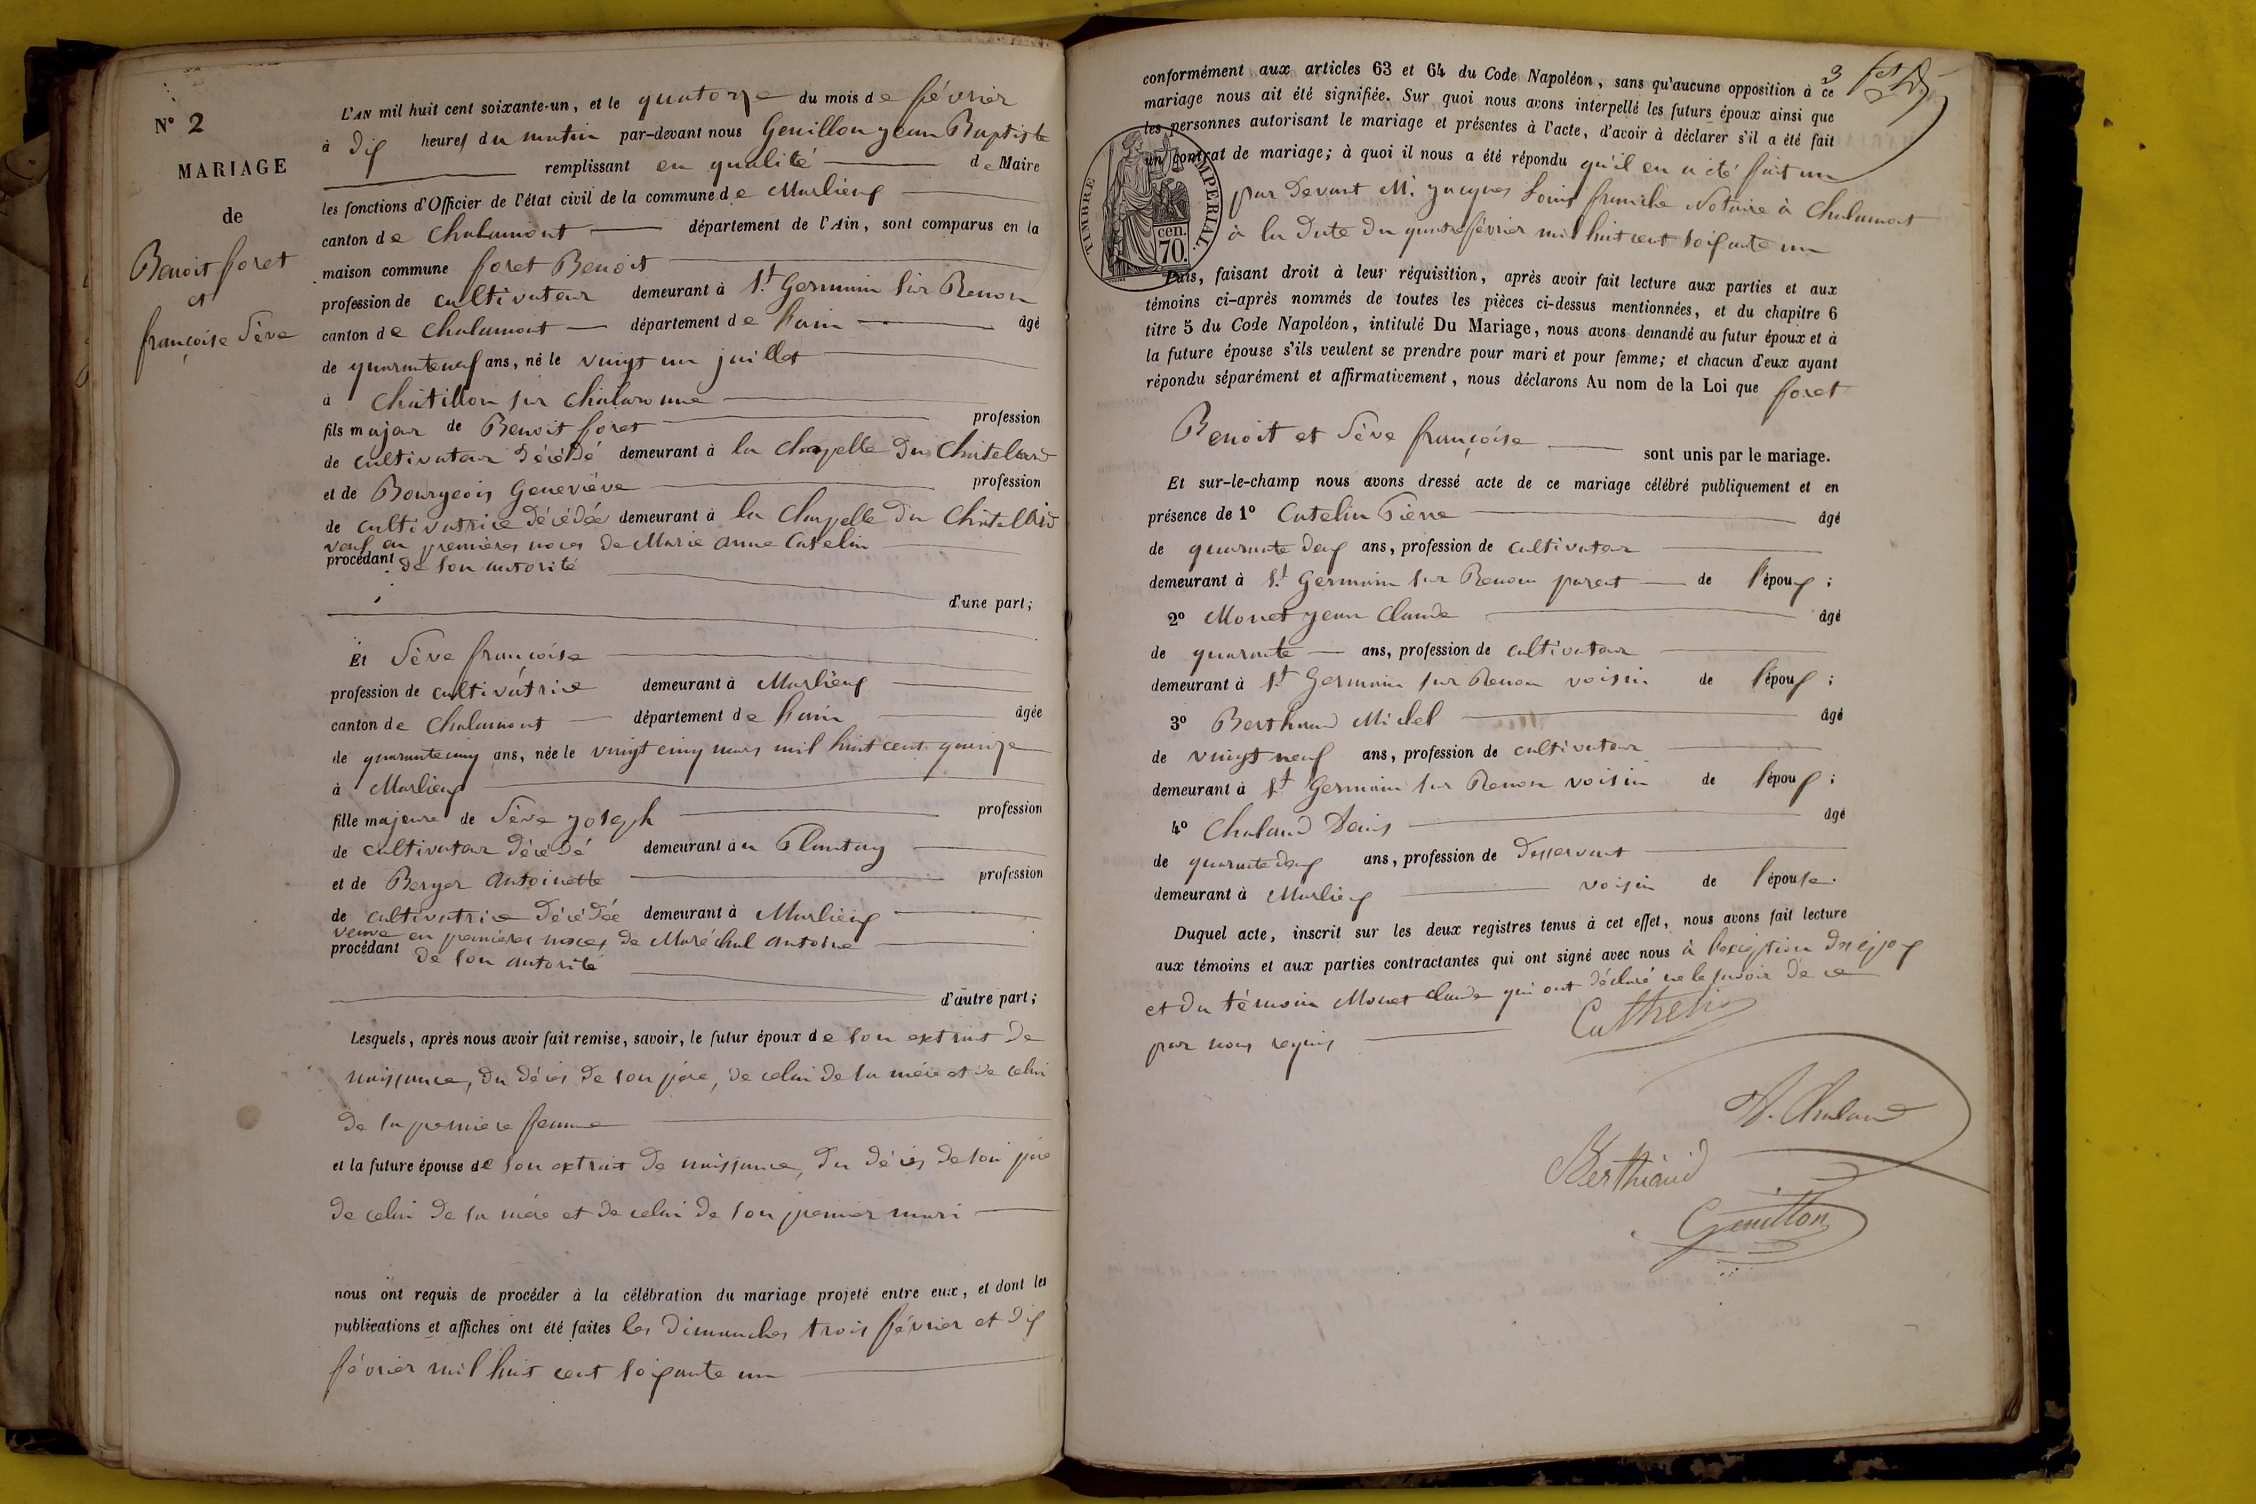 N° 2
MARIAGE
de
Benoit foret
et
françoise Sève
L'AN mil huit cent soixante-un, et le quatorze du mois de février
à dix heures du matin par-devant nous Genillon jean Baptiste
remplissant en qualité de Maire
les fonctions d'Officier de l'état civil de la commune de Marlieux
canton de Chalamont département de l'Ain, sont comparus en la
maison commune foret Benoit
profession de cultivateur demeurant à St Germain sur Renom
canton de Chalamont département de l'ain âgé
de quaranteneuf ans, né le vingt un juillet
à Châtillon sur Chalaronne
fils majeur de Benoit foret profession
de cultivateur décédé demeurant à la Chapelle du Chatelard
et de Bourgeois Geneviève profession
de cultivatrice décédée demeurant à la Chapelle du Châtellard
veuf en premières noces de Marie anne Catelin
procédant de son autorité
d'une part;
Et Sève françoise
profession de cultivatrice demeurant à Marlieux
canton de Chalamont département de l'ain âgée
de quarantecinq ans, née le vingt cinq mars mil huit cent quinze
à Marlieux
fille majeure de Sève joseph profession
de cultivateur décédé demeurant au Plantay
et de Berger antoinette profession
de cultivatrice décédée demeurant à Marlieux
veuve en premières noces de Maréchal antoine
procédant de son autorité
d'autre part;
Lesquels, après nous avoir fait remise, savoir, le futur époux de son extrait de
naissance, du décès de son père, de celui de sa mère et de celui
de sa première femme
et la future épouse de son extrait de naissance, du décès de son père
de celui de sa mère et de celui de son premier mari
nous ont requis de procéder à la célébration du mariage projeté entre eux, et dont les
publications et affiches ont été faites les dimanches trois février et dix
février mil huit cent soixante un
3
conformément aux articles 63 et 64 du Code Napoléon, sans qu'aucune opposition à ce
mariage nous ait été signifiée. Sur quoi nous avons interpellé les futurs époux ainsi que
les personnes autorisant le mariage et présentes à l'acte, d'avoir à déclarer s'il a été fait
un contrat de mariage; à quoi il nous a été répondu qu'il en a été fait un
par devant M. jacques Louis franche Notaire à Chalamont
à la date du quatre février mil huit cent soixante un
TIMBRE IMPERIAL.
cen. 70.
Puis, faisant droit à leur réquisition, après avoir fait lecture aux parties et aux
témoins ci-après nommés de toutes les pièces ci-dessus mentionnées, et du chapitre 6
titre 5 du Code Napoléon, intitulé Du Mariage, nous avons demandé au futur époux et à
la future épouse s'ils veulent se prendre pour mari et pour femme; et chacun d'eux ayant
répondu séparément et affirmativement, nous déclarons Au nom de la Loi que foret
Benoit et Sève françoise
sont unis par le mariage.
Et sur-le-champ nous avons dressé acte de ce mariage célébré publiquement et en
présence de 1° Catelin Pierre âgé
de quarante deux ans, profession de cultivateur
demeurant à St Germain sur Renom parent de l'époux;
2° Monet jean Claude âgé
de quarante ans, profession de cultivateur
demeurant à St Germain sur Renom voisin de l'époux;
3° Berthaud Michel âgé
de vingt neuf ans, profession de cultivateur
demeurant à St Germain sur Renom voisin de l'époux;
4° Chaland Denis âgé
de quarantedeux ans, profession de desservant
demeurant à Marlieux voisin de l'épouse.
Duquel acte, inscrit sur les deux registres tenus à cet effet, nous avons fait lecture
aux témoins et aux parties contractantes qui ont signé avec nous à l'exception des époux
et du témoin Monet Claude qui ont déclaré ne le savoir de ce
par nous requis
Cathelin
D. Chaland
Berthaud
Genillon